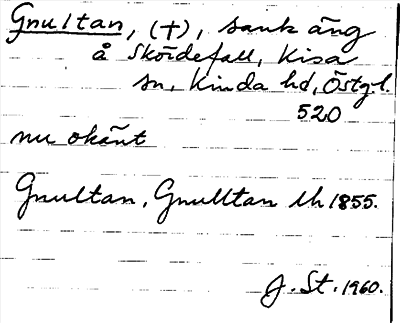 Gnultan, (†), sank äng
å Skördefall, Kisa
sn, Kinda hd, Östgl.
520
nu okänt
Gnultan, Gnulltan lh 1855.
J. St. 1960.